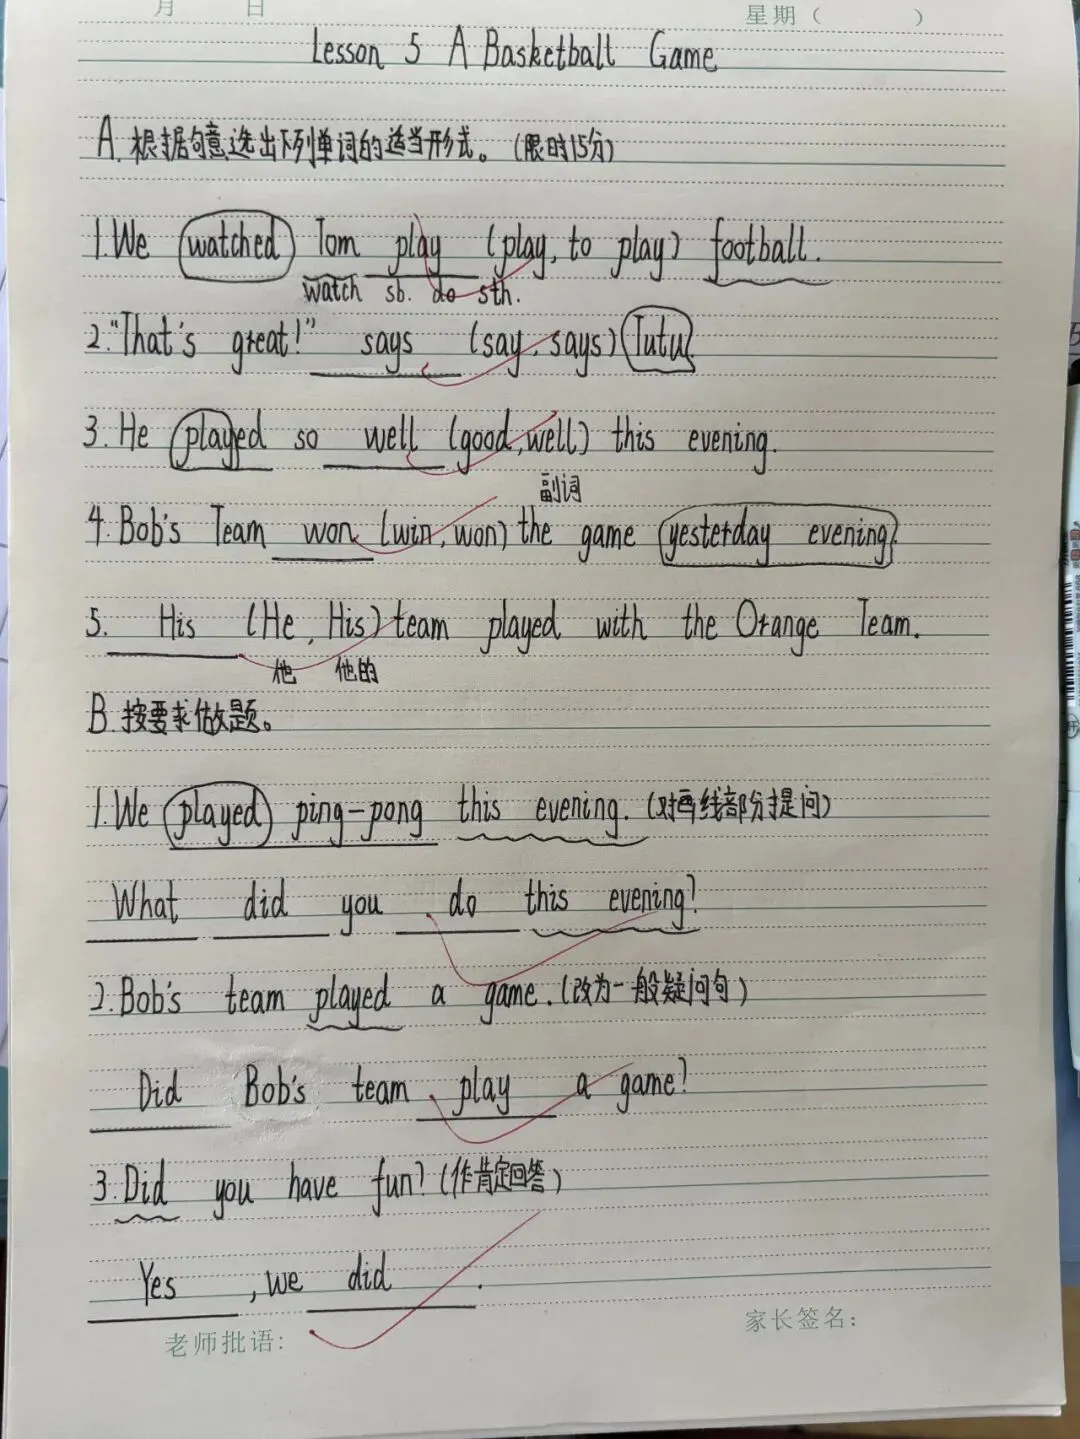 月 日 星期（ ）
Lesson 5 A Basketball Game
A. 根据句意选出下列单词的适当形式。(限时15分)
1. We watched Tom play (play, to play) football.
watch sb. do sth.
2. "That's great!" says (say, says) Tutu.
3. He played so well (good, well) this evening.
副词
4. Bob's Team won (win, won) the game yesterday evening.
5. His (He, His) team played with the Orange Team.
他 他的
B. 按要求做题。
1. We played ping-pong this evening. (对画线部分提问)
What did you do this evening?
2. Bob's team played a game. (改为一般疑问句)
Did Bob's team play a game?
3. Did you have fun? (作肯定回答)
Yes , we did .
老师批语: 家长签名: